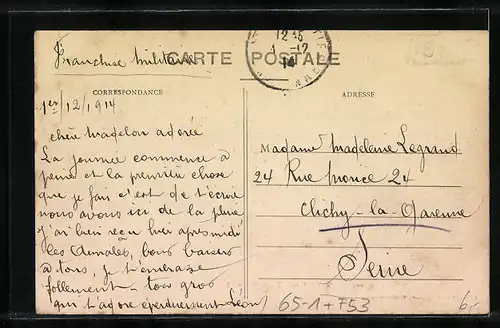 Franchise Militaire
CARTE POSTALE
12 45
1 -12
14
CORRESPONDANCE
ADRESSE
1er/12/1914
chère Madelon adorée
La journée commence à
peine et la première chose
que je fais c'est de t'écrire
nous avons ici de la pluie
j'ai bien reçu hier après midi
les Annales, bons baisers
à tous, je t'embrasse
follement - ton gros
qui t'adore éperduement Léon
Madame Madeleine Legrand
24 Rue 24
Clichy-la-Garenne
Seine
65-1-+53